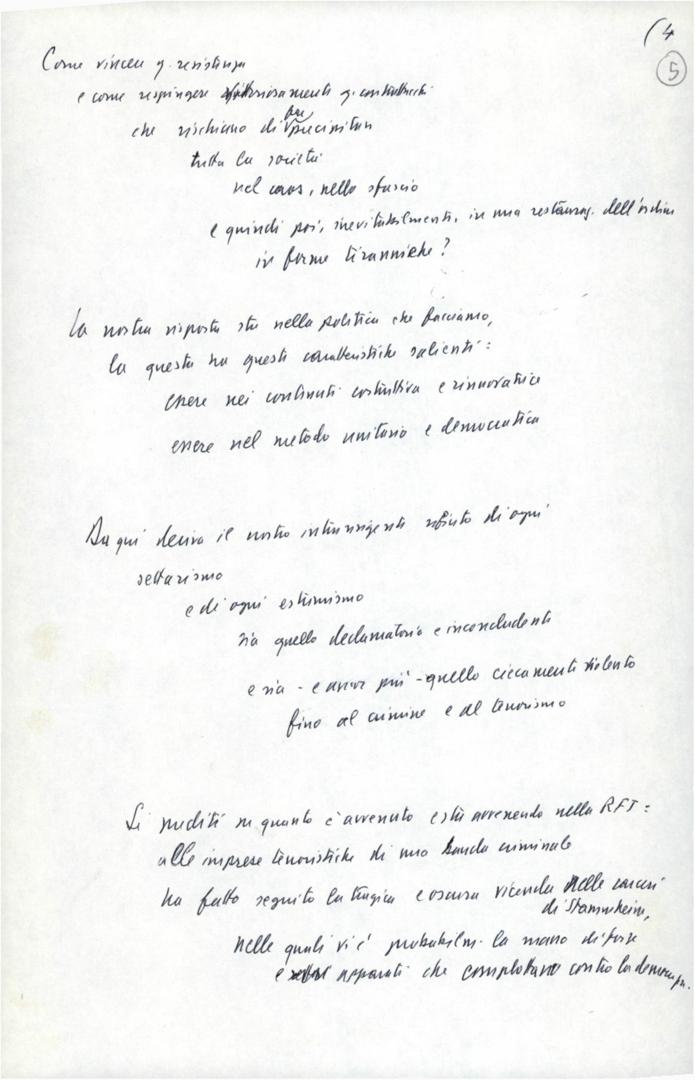 (4
5
Come vincere q. resistenze
e come respingere vittoriosamente q. contrattacchi
che rischiano di far
precipitare
tutta la società
nel caos, nello sfascio
e quindi poi, inevitabilmente, in una restauraz. dell'ordine
in forme tiranniche?
La nostra risposta sta nella politica che facciamo,
la questa ha queste caratteristiche salienti:
essere nei contenuti costruttiva e rinnovatrice
essere nel metodo unitaria e democratica
Da qui deriva il nostro intransigente rifiuto di ogni
settarismo
e di ogni estremismo
sia quello declamatorio e inconcludente
e sia - e ancor più - quello ciecamente violento
fino al crimine e al terrorismo
Si mediti su quanto è avvenuto e sta avvenendo nella RFT:
alle imprese terroristiche di una banda criminale
ha fatto seguito la tragica e oscura vicenda nelle carceri
di Stammheim,
nelle quali vi è probabilm. la mano di forze
e apparati che complottano contro la democrazia.